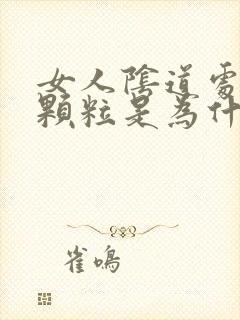 女人陰道處
顆粒是為什
雀鳴